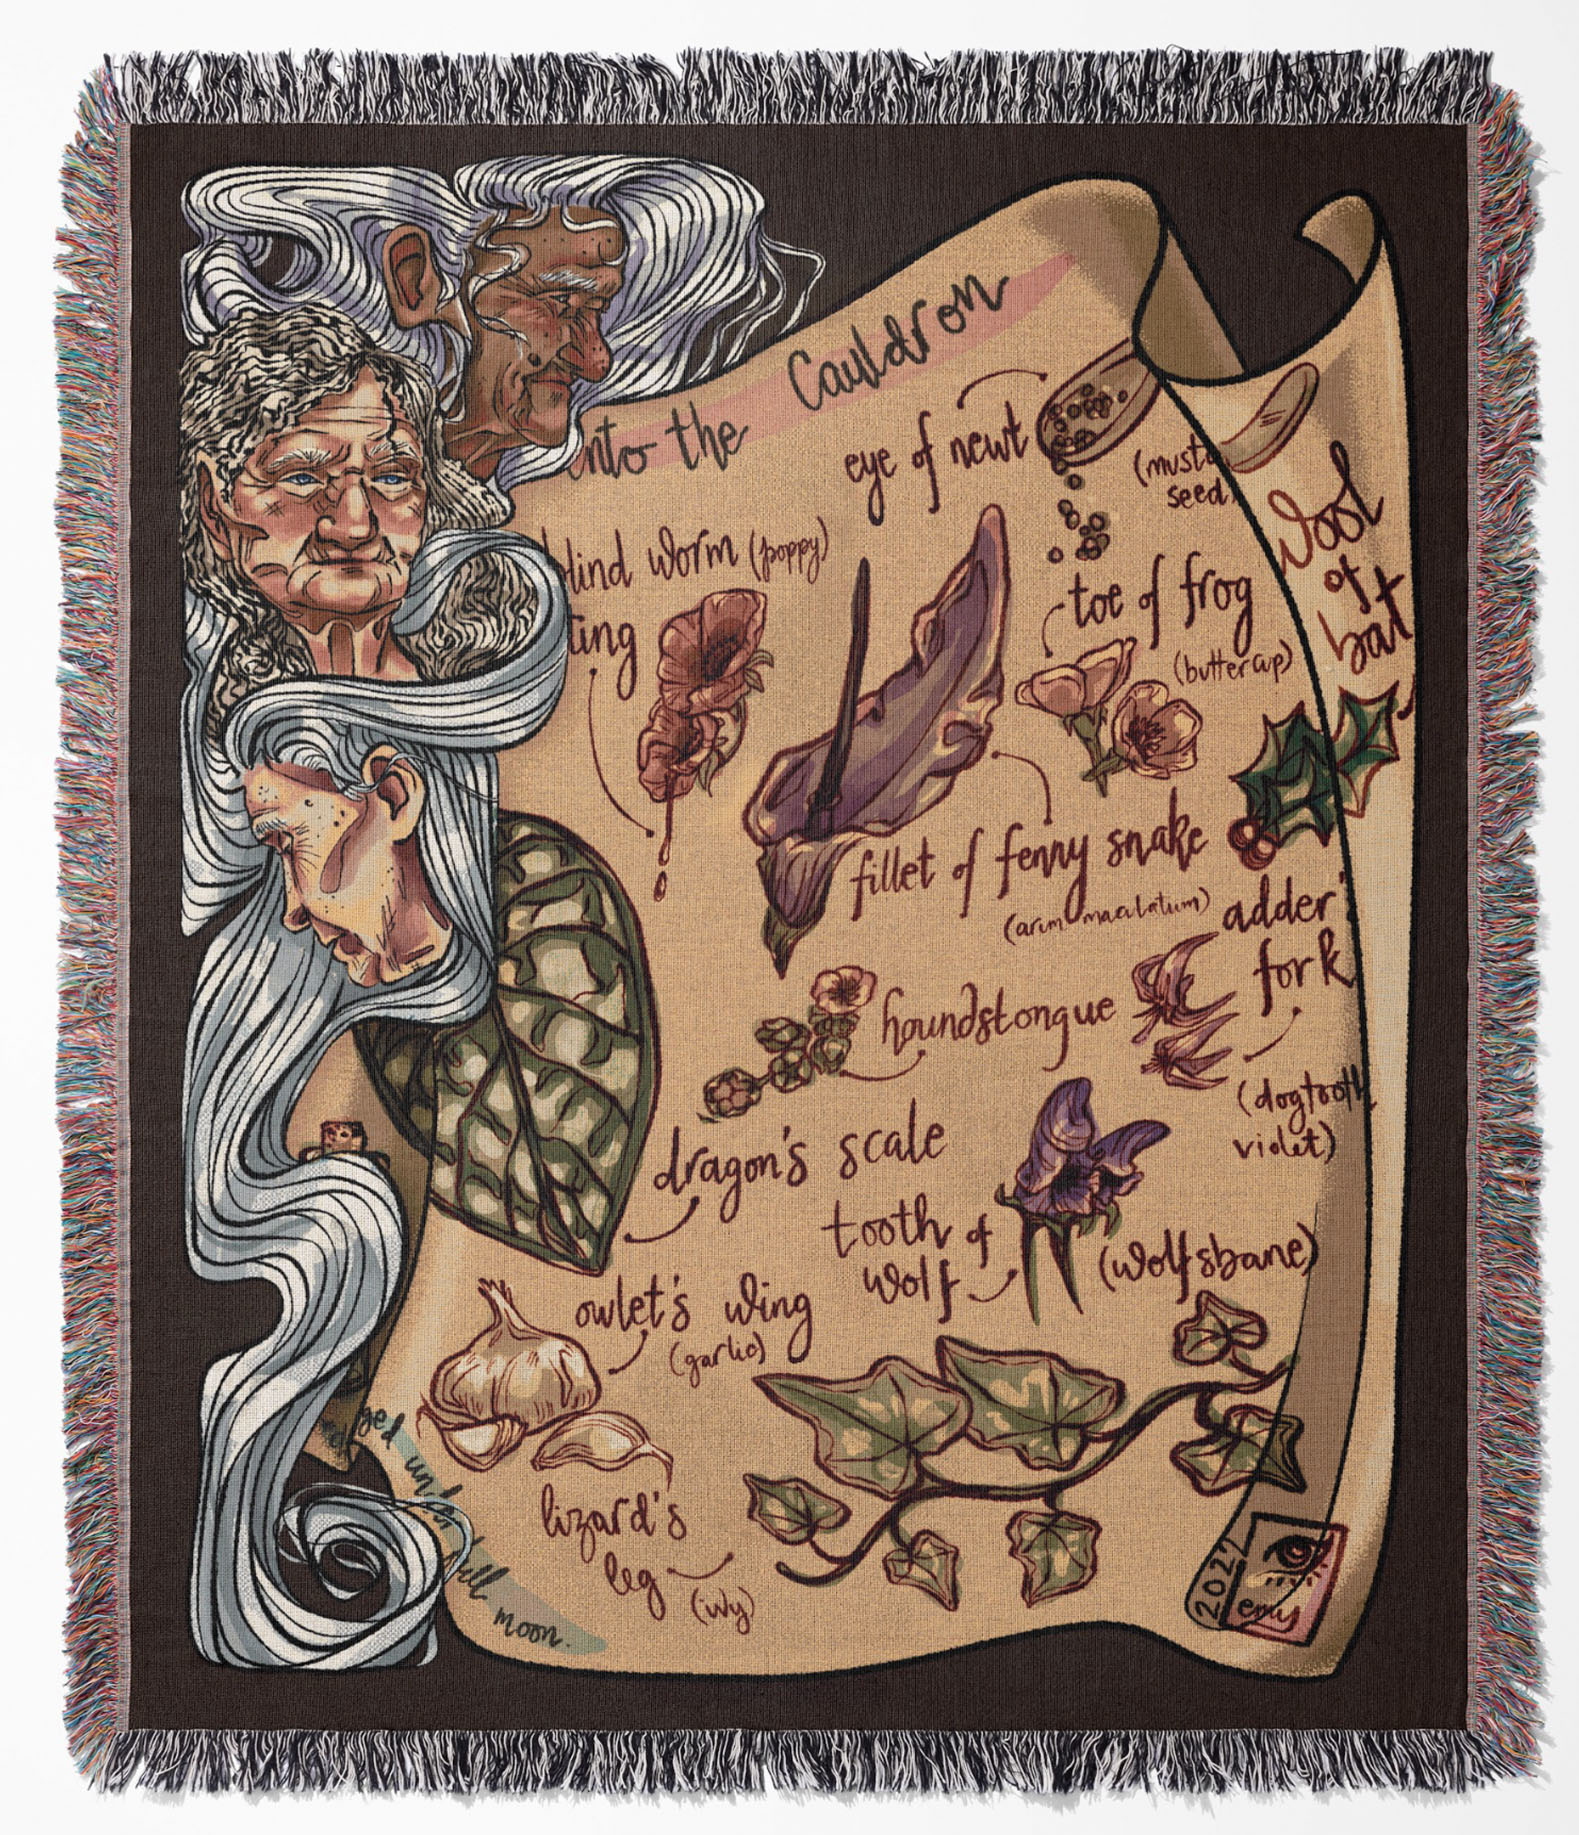 nto the Cauldron
eye of newt
(musta
seed)
Wool
of
bat
lind worm (poppy)
ting
toe of frog
(buttercup)
fillet of fenny snake
(arum maculatum)
adder's
fork
(dogtooth
violet)
houndstongue
dragon's scale
tooth of
wolf
(wolfsbane)
owlet's wing
(garlic)
lizard's
leg
(ivy)
moon.
2022
emy